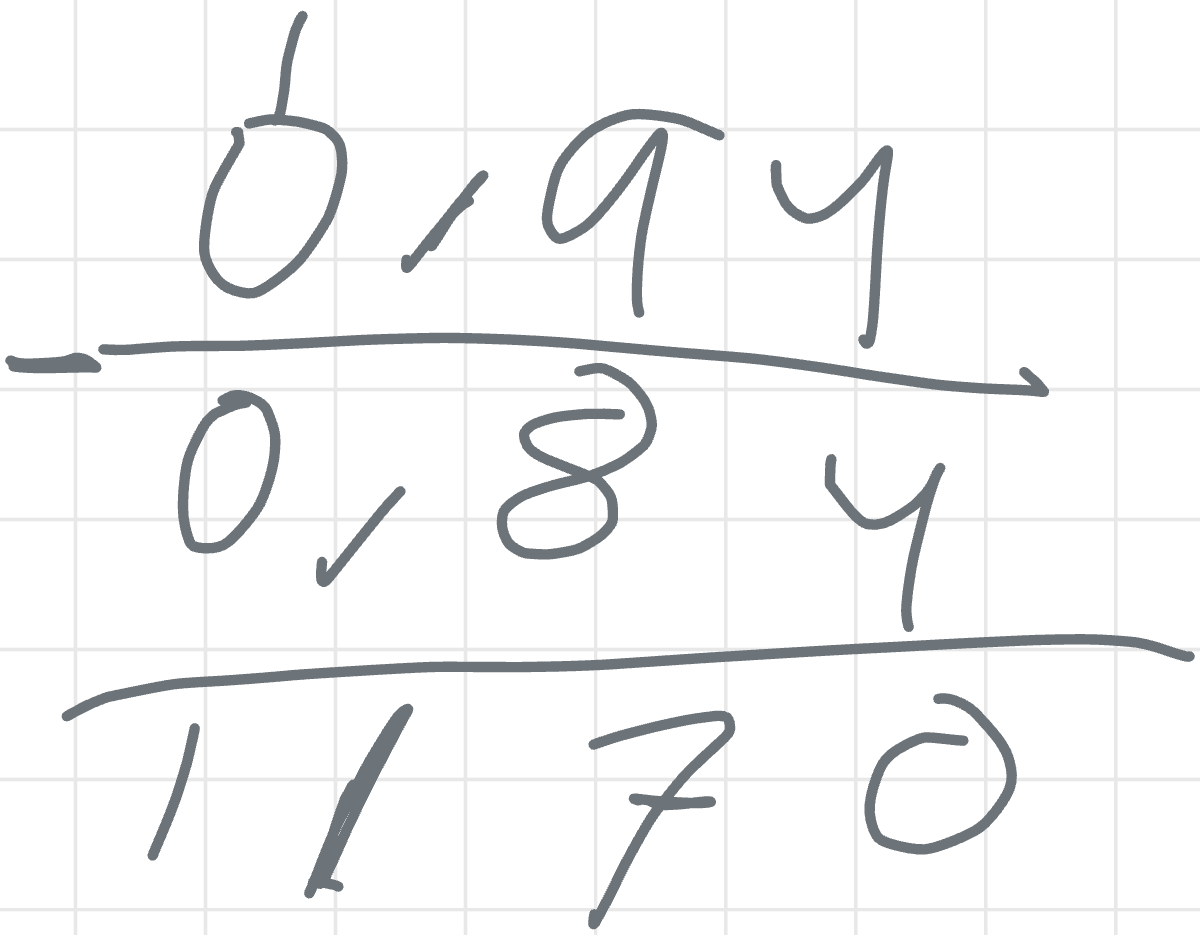 1
0,94
- 0,84
1,70